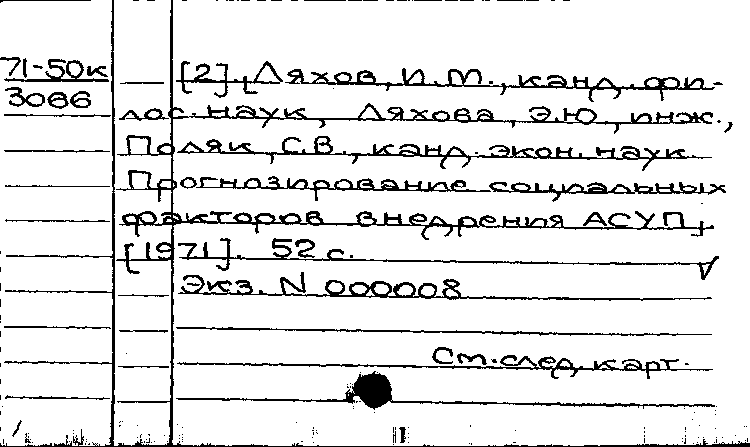 71-50к [2]. Ляхов, И.М., канд. фи-
3066 лос. наук, Ляхова, Э.Ю., инж.,
Поляк, С.В., канд. экон. наук
Прогнозирование социальных
факторов внедрения АСУП,
[1971]. 52 с.
Экз. N 000008
См. след. карт.